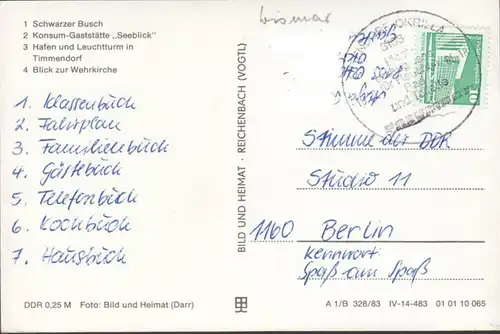 1 Schwarzer Busch
2 Konsum-Gaststätte „Seeblick"
3 Hafen und Leuchtturm in
Timmendorf
4 Blick zur Wehrkirche
wismar
1. Klassenbuch
2. Fahrplan
3. Familienbuch
4. Gästebuch
5. Telefonbuch
6. Kochbuch
7. Hausbuch
DDR 0,25 M Foto: Bild und Heimat (Darr)
BILD UND HEIMAT · REICHENBACH (VOGTL)
10
Stimme der DDR
Studio 11
1160 Berlin
Kennwort
Spaß am Spaß
A 1/B 328/83 IV-14-483 01 01 10 065